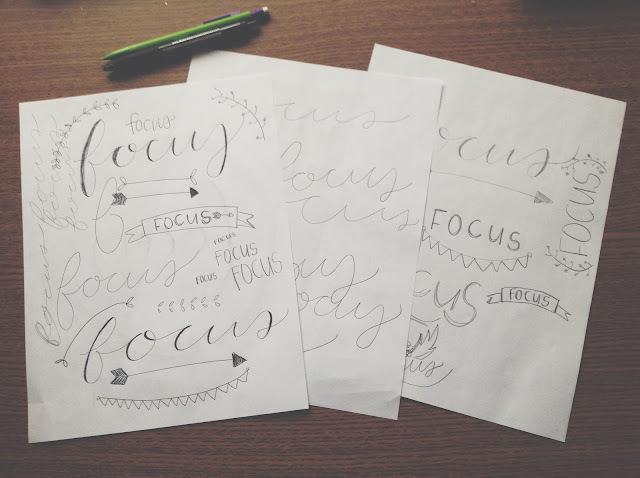 focus
focus
FOCUS
FOCUS
FOCUS
FOCUS
FOCUS
focus
focus
focus
focus
focus
cus
ocus
cus
us
ody
ocus
FOCUS
FOCUS
OCUS
FOCUS
us